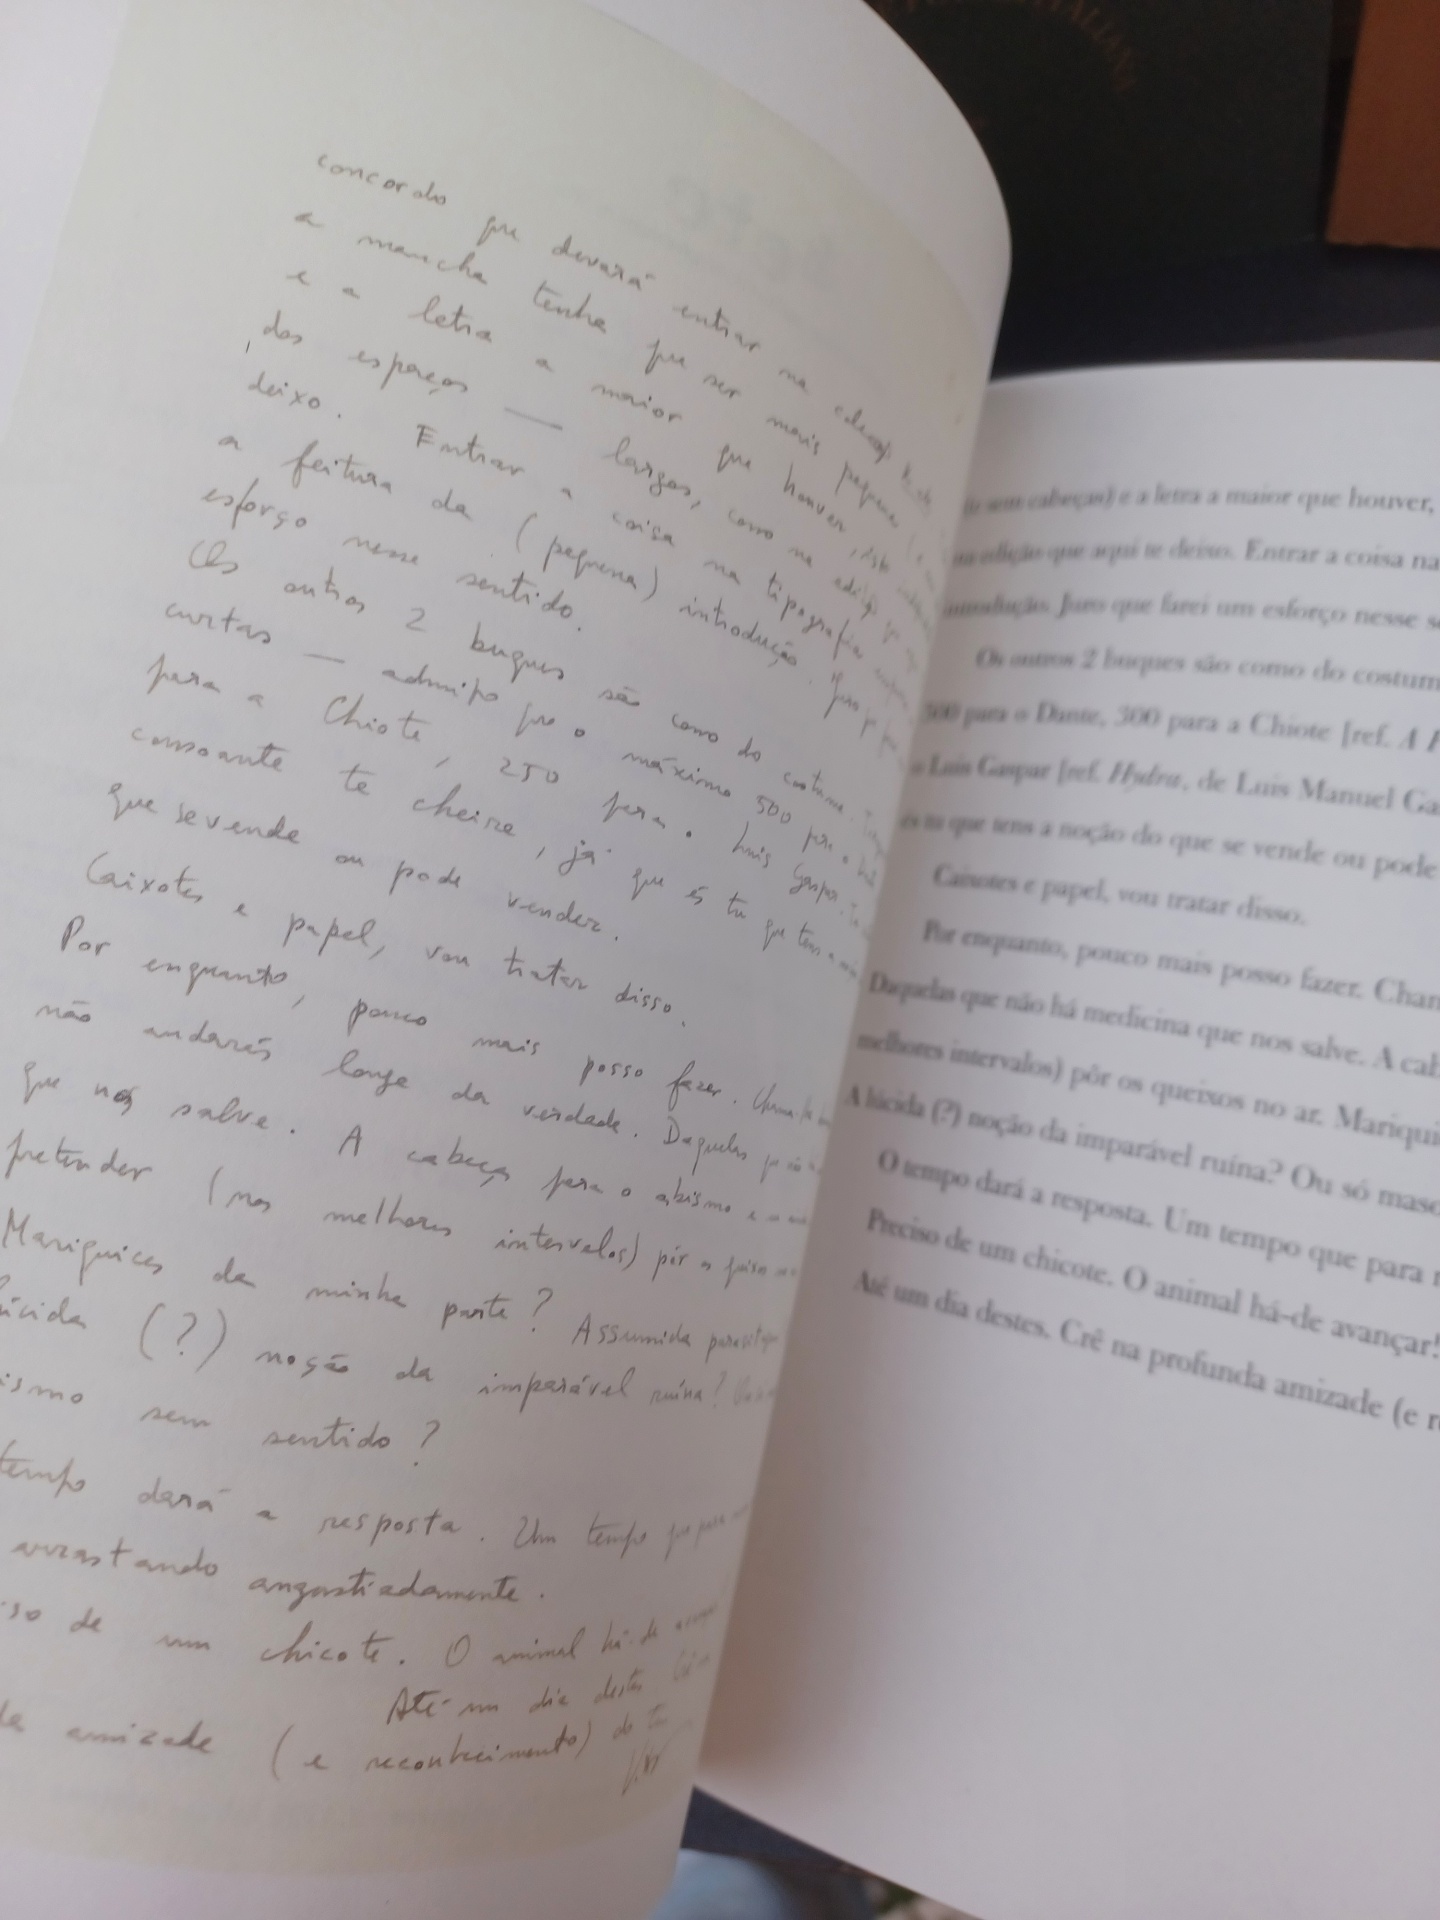 concordo que deverá entrar na
a mancha tenha que ser mais pequena
e a letra a maior que houver
dos espaços — largos, como na edição
deixo. Entrar a coisa na tipografia
a feitura da (pequena) introdução. Juro que
esforço nesse sentido.
Os outros 2 buques são como do costume.
curtas — admito que o máximo 500 para o
para a Chiote, 250 para o Luis Gaspar.
consoante te cheire, já que és tu que tens a
que se vende ou pode vender.
Caixotes e papel, vou tratar disso.
Por enquanto, pouco mais posso fazer.
não andarás longe da verdade. Daquelas que não
que nos salve. A cabeça para o abismo e
pretender (nos melhores intervalos) pôr os queixos no
Mariquices da minha parte? Assumida
lúcida (?) noção da imparável ruína?
ismo sem sentido?
tempo dará a resposta. Um tempo que para
arrastando angustiadamente.
iso de um chicote. O animal há-de
Até um dia destes.
da amizade (e reconhecimento) do teu
(e sem cabeças) e a letra a maior que houver,
na edição que aqui te deixo. Entrar a coisa na
introdução. Juro que farei um esforço nesse s
Os outros 2 buques são como do costum
500 para o Dante, 300 para a Chiote [ref. A
o Luis Gaspar [ref. Hydra, de Luis Manuel Ga
és tu que tens a noção do que se vende ou pode
Caixotes e papel, vou tratar disso.
Por enquanto, pouco mais posso fazer. Cham
Daquelas que não há medicina que nos salve. A cab
melhores intervalos) pôr os queixos no ar. Mariqui
A lúcida (?) noção da imparável ruína? Ou só maso
O tempo dará a resposta. Um tempo que para
Preciso de um chicote. O animal há-de avançar!
Até um dia destes. Crê na profunda amizade (e r